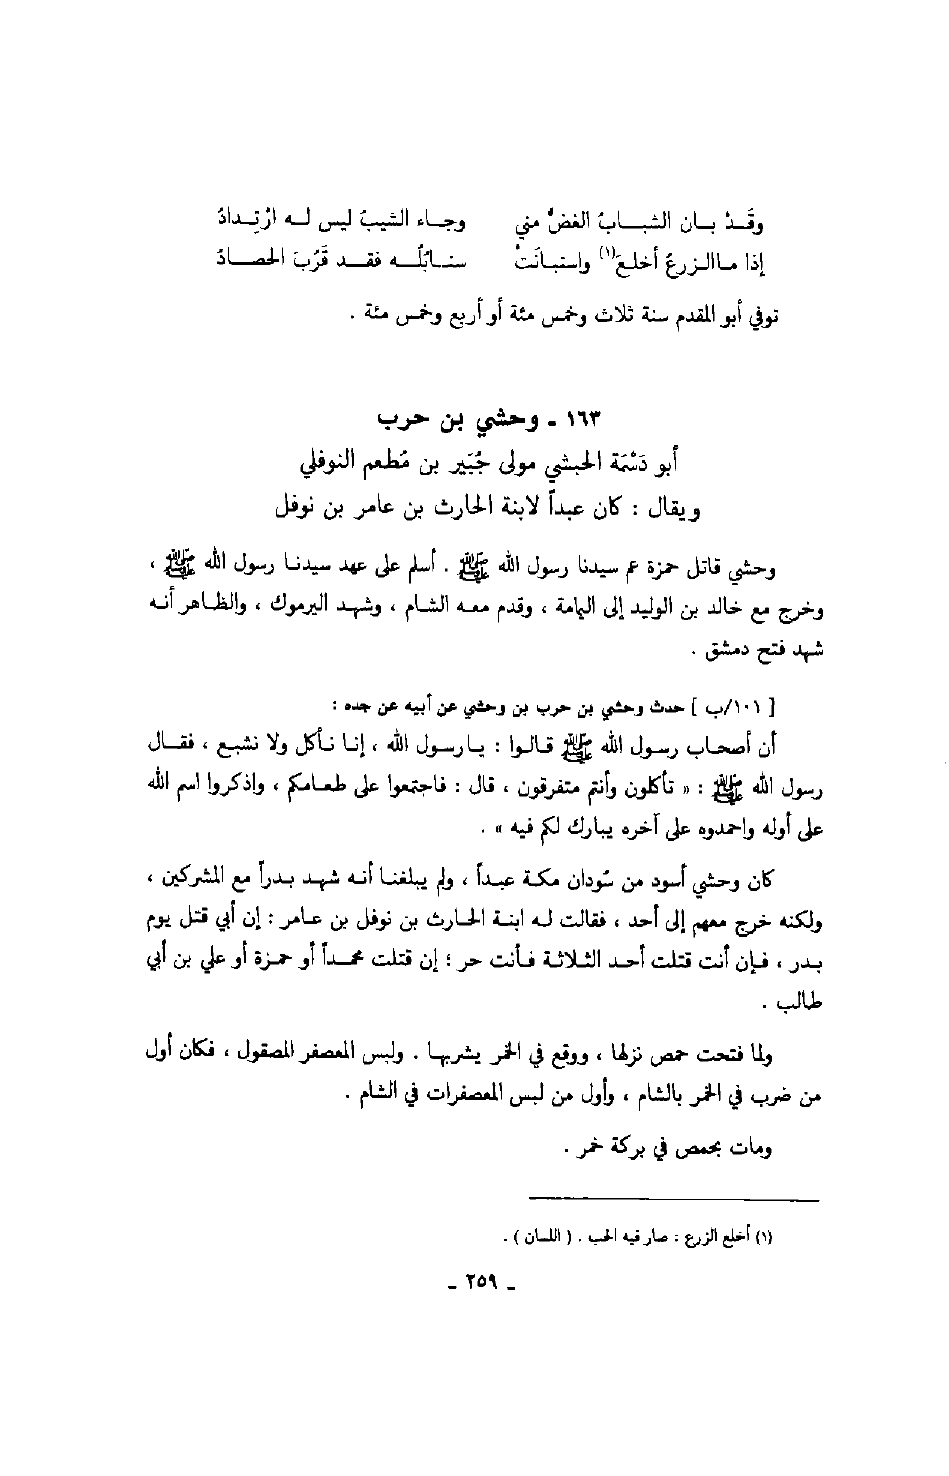 وقَدْ بان الشباب الغضُّ مني وجاء الشيبُ ليس له ازْتِدادُ
إذا ماالزرعُ أخلع(١) واستبانَتْ سنابُله فقد قَرُبَ الحصادُ
توفي أبو المقدم سنة ثلاث وخمس مئة أو أربع وخمس مئة .
١٦٣ - وحشي بن حرب
أبو دَسْمَة الحبشي مولى جُبَير بن مُطعم النوفلي
ويقال : كان عبداً لابنة الحارث بن عامر بن نوفل
وحشي قاتل حمزة عم سيدنا رسول الله ﷺ . أسلم على عهد سيدنا رسول الله ﷺ ،
وخرج مع خالد بن الوليد إلى اليمامة ، وقدم معه الشام ، وشهد اليرموك ، والظاهر أنه
شهد فتح دمشق .
[ ١٠١/ب ] حدث وحشي بن حرب بن وحشي عن أبيه عن جده :
أن أصحاب رسول الله ﷺ قالوا : يارسول الله ، إنا نأكل ولا نشبع ، فقال
رسول الله ﷺ : « تأكلون وأنتم متفرقون ، قال : فاجتمعوا على طعامكم ، واذكروا اسم الله
على أوله واحمدوه على آخره يبارك لكم فيه » .
كان وحشي أسود من سُودان مكة عبداً ، ولم يبلغنا أنه شهد بدراً مع المشركين ،
ولكنه خرج معهم إلى أحد ، فقالت له ابنة الحارث بن نوفل بن عامر : إن أبي قتل يوم
بدر ، فإن أنت قتلت أحد الثلاثة فأنت حر ؛ إن قتلت محمداً أو حمزة أو علي بن أبي
طالب .
ولما فتحت حمص نزلها ، ووقع في الخمر يشربها . ولبس المعصفر المصقول ، فكان أول
من ضرب في الخمر بالشام ، وأول من لبس المعصفرات في الشام .
ومات بحمص في بركة خمر .
(١) أخلع الزرع : صار فيه الحب . ( اللسان ) .
- ٢٥٩ -